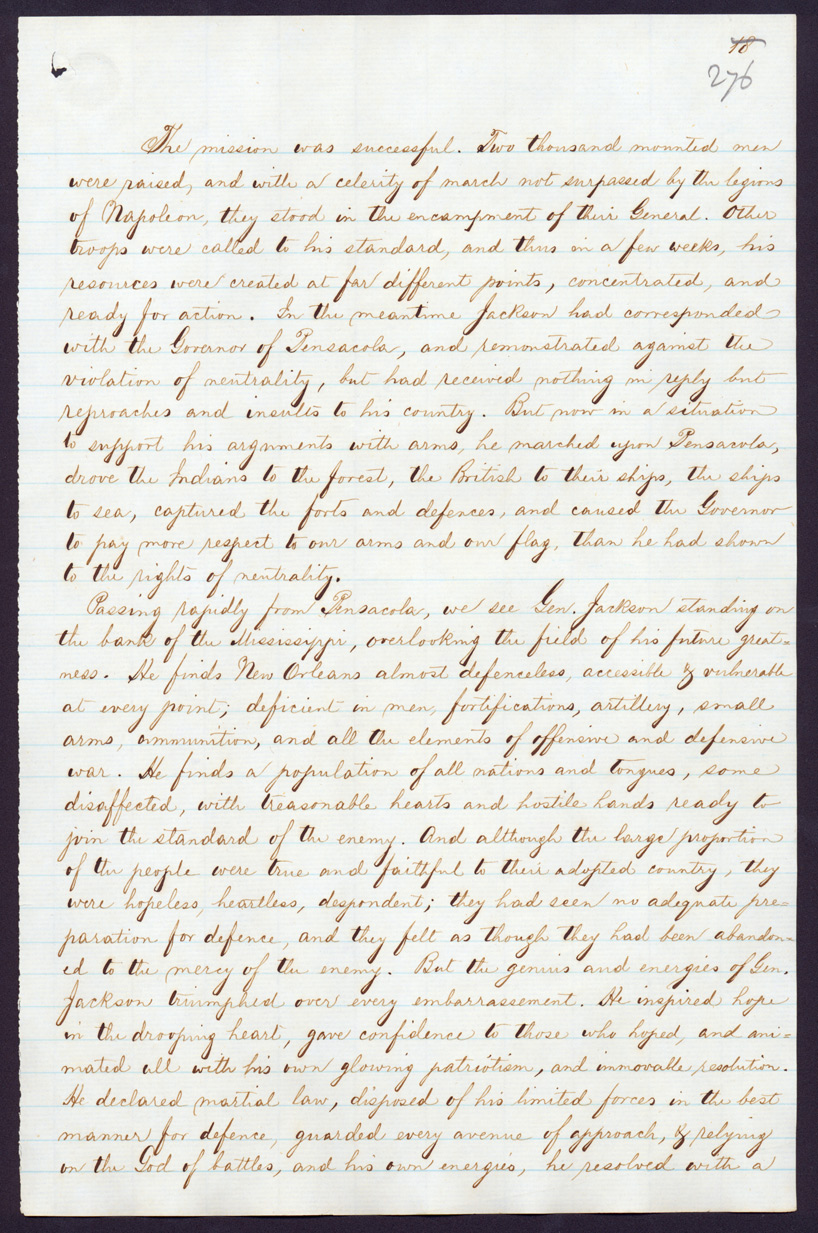 18
276
The mission was successful. Two thousand mounted men
were raised, and with a celerity of march not surpassed by the legions
of Napoleon, they stood in the encampment of their General. Other
troops were called to his standard, and thus in a few weeks, his
resources were created at far different points, concentrated, and
ready for action. In the meantime Jackson had corresponded
with the Governor of Pensacola, and remonstrated against the
violation of neutrality, but had received nothing in reply but
reproaches and insults to his country. But now in a situation
to support his arguments with arms, he marched upon Pensacola,
drove the Indians to the forest, the British to their ships, the ships
to sea, captured the forts and defences, and caused the Governor
to pay more respect to our arms and our flag, than he had shown
to the rights of neutrality.
Passing rapidly from Pensacola, we see Gen. Jackson standing on
the bank of the Mississippi, overlooking the field of his future great=
ness. He finds New Orleans almost defenceless, accessible & vulnerable
at every point; deficient in men, fortifications, artillery, small
arms, ammunition, and all the elements of offensive and defensive
war. He finds a population of all nations and tongues, some
disaffected, with treasonable hearts and hostile hands ready to
join the standard of the enemy. And although the large proportion
of the people were true and faithful to their adopted country, they
were hopeless, heartless, despondent; they had seen no adequate pre=
paration for defence, and they felt as though they had been abandon=
ed to the mercy of the enemy. But the genius and energies of Gen.
Jackson triumphed over every embarrassement. He inspired hope
in the drooping heart, gave confidence to those who hoped, and ani=
mated all with his own glowing patriotism, and immovable resolution.
He declared martial law, disposed of his limited forces in the best
manner for defence, guarded every avenue of approach, & relying
on the God of battles, and his own energies, he resolved with a